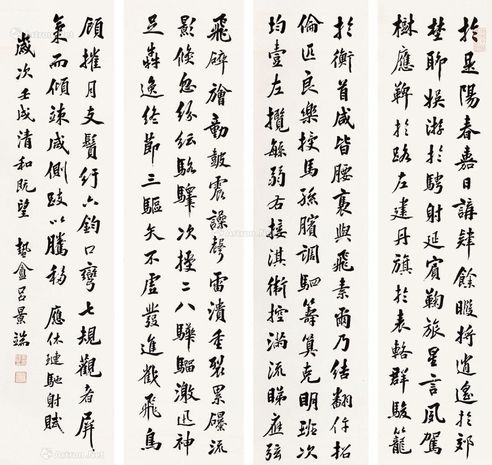 於是陽春嘉日講肄餘暇將逍遙於郊
埜聊娛游於騁射延賓鞠旅星言夙駕
樹應鞞於路左建丹旗於表路群駿籠
於衡首咸皆腰褭與飛素爾乃結翻仟拓
倫匹良樂授馬孫臏調駟籌算克明班次
均壹左攬繁弱右接淇衛控滿流睇應弦
飛碎旝動鼓震譟聲雷潰重裂累礧流
影倏忽紛紜駱驛次授二八驊騮激迅神
足犇逸終節三驅矢不虛發進截飛鳥
顧摧月支鬢紆六鈞口彎七規觀者屏
氣而傾竦咸側跂以騰移 應休璉馳射賦
歲次壬戌清和既望 蟄盦呂景端